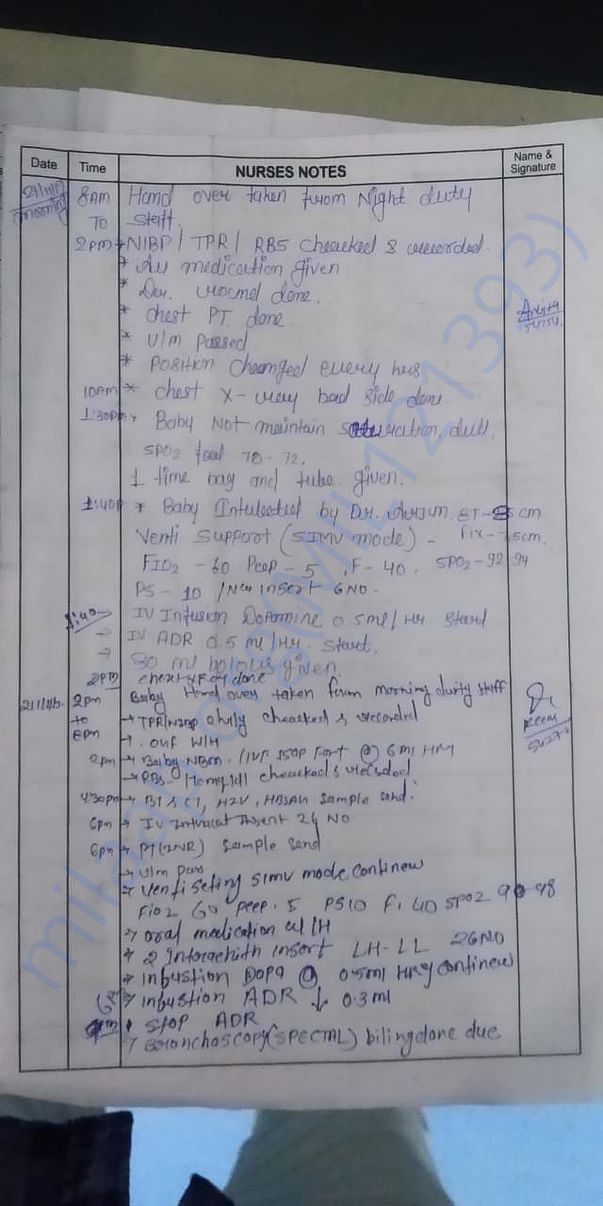 Date Time NURSES NOTES Name & Signature
8AM Hand over taken from Night duty
TO Staff.
2pm * NIBP / TPR / RBS cheacked & recorded.
* All medication given
* round done.
* chest PT. done
* U/m Passed
* Position Chamged every hrs
10AM * chest X-ray bad side done.
1:30pm * Baby Not maintain
SPO2 78-72.
1 time bag and tube given.
1:40p * Baby Intubated by Dr. Arjun. ET - cm
Venti Support (SIMV mode) - Fix - cm.
FIO2 - 60 Peep - 5 , F - 40. SPO2 - 92 94
PS - 10 / insert 6NO.
1:40 → IV Infusion Dopamine 0.5ml / Hr Start
→ IV ADR 0.5 ml / Hr. Start.
→ 30 ml bolous given.
2pm chest done
2pm Baby Hand over taken form morning durty staff
to → TPR/ cheacked & recorded
8pm → W/H
2pm → Baby NBm. / IVF ISOP Fort @ 6 ml
→ RBS - cheacked & recorded
4:30pm → BT & CT, HIV, HBSAG Sample send.
6pm → IV Insert 24 NO
6pm → PT (INR) Sample Send
→ U/m Pass
→ Venti Seting SIMV mode continew
FiO2 60 Peep. 5 PS10 F. 40 SPO2 98
→ oral medication W/H
→ 2 insert LH-LL 26NO
→ infustion Dopa @ 0.5ml continew
→ infustion ADR ↓ 0.3 ml
• Stop ADR
→ Bronchoscopy (SPECIAL) biling done due
milaap.org(MIL121393)